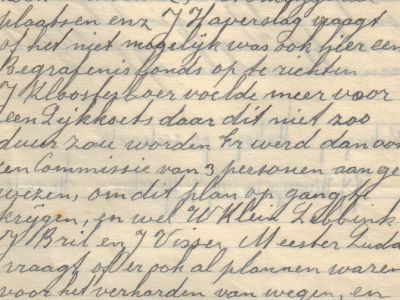 plaatsen enz J Haverslag vraagt
of het niet mogelijk was ook hier een
Begrafenisfonds op te richten
J Kloosterboer voelde meer voor
een Lijkkoets daar dit niet zoo
duur zou worden Er werd dan ook
een Commissie van 3 personen aange
wezen, om dit plan op gang te
krijgen, en wel W Klein Lebbink
J Bril en J Visser Meester Luda
vraagt of er ook al plannen waren
voor het verharden van wegen, en